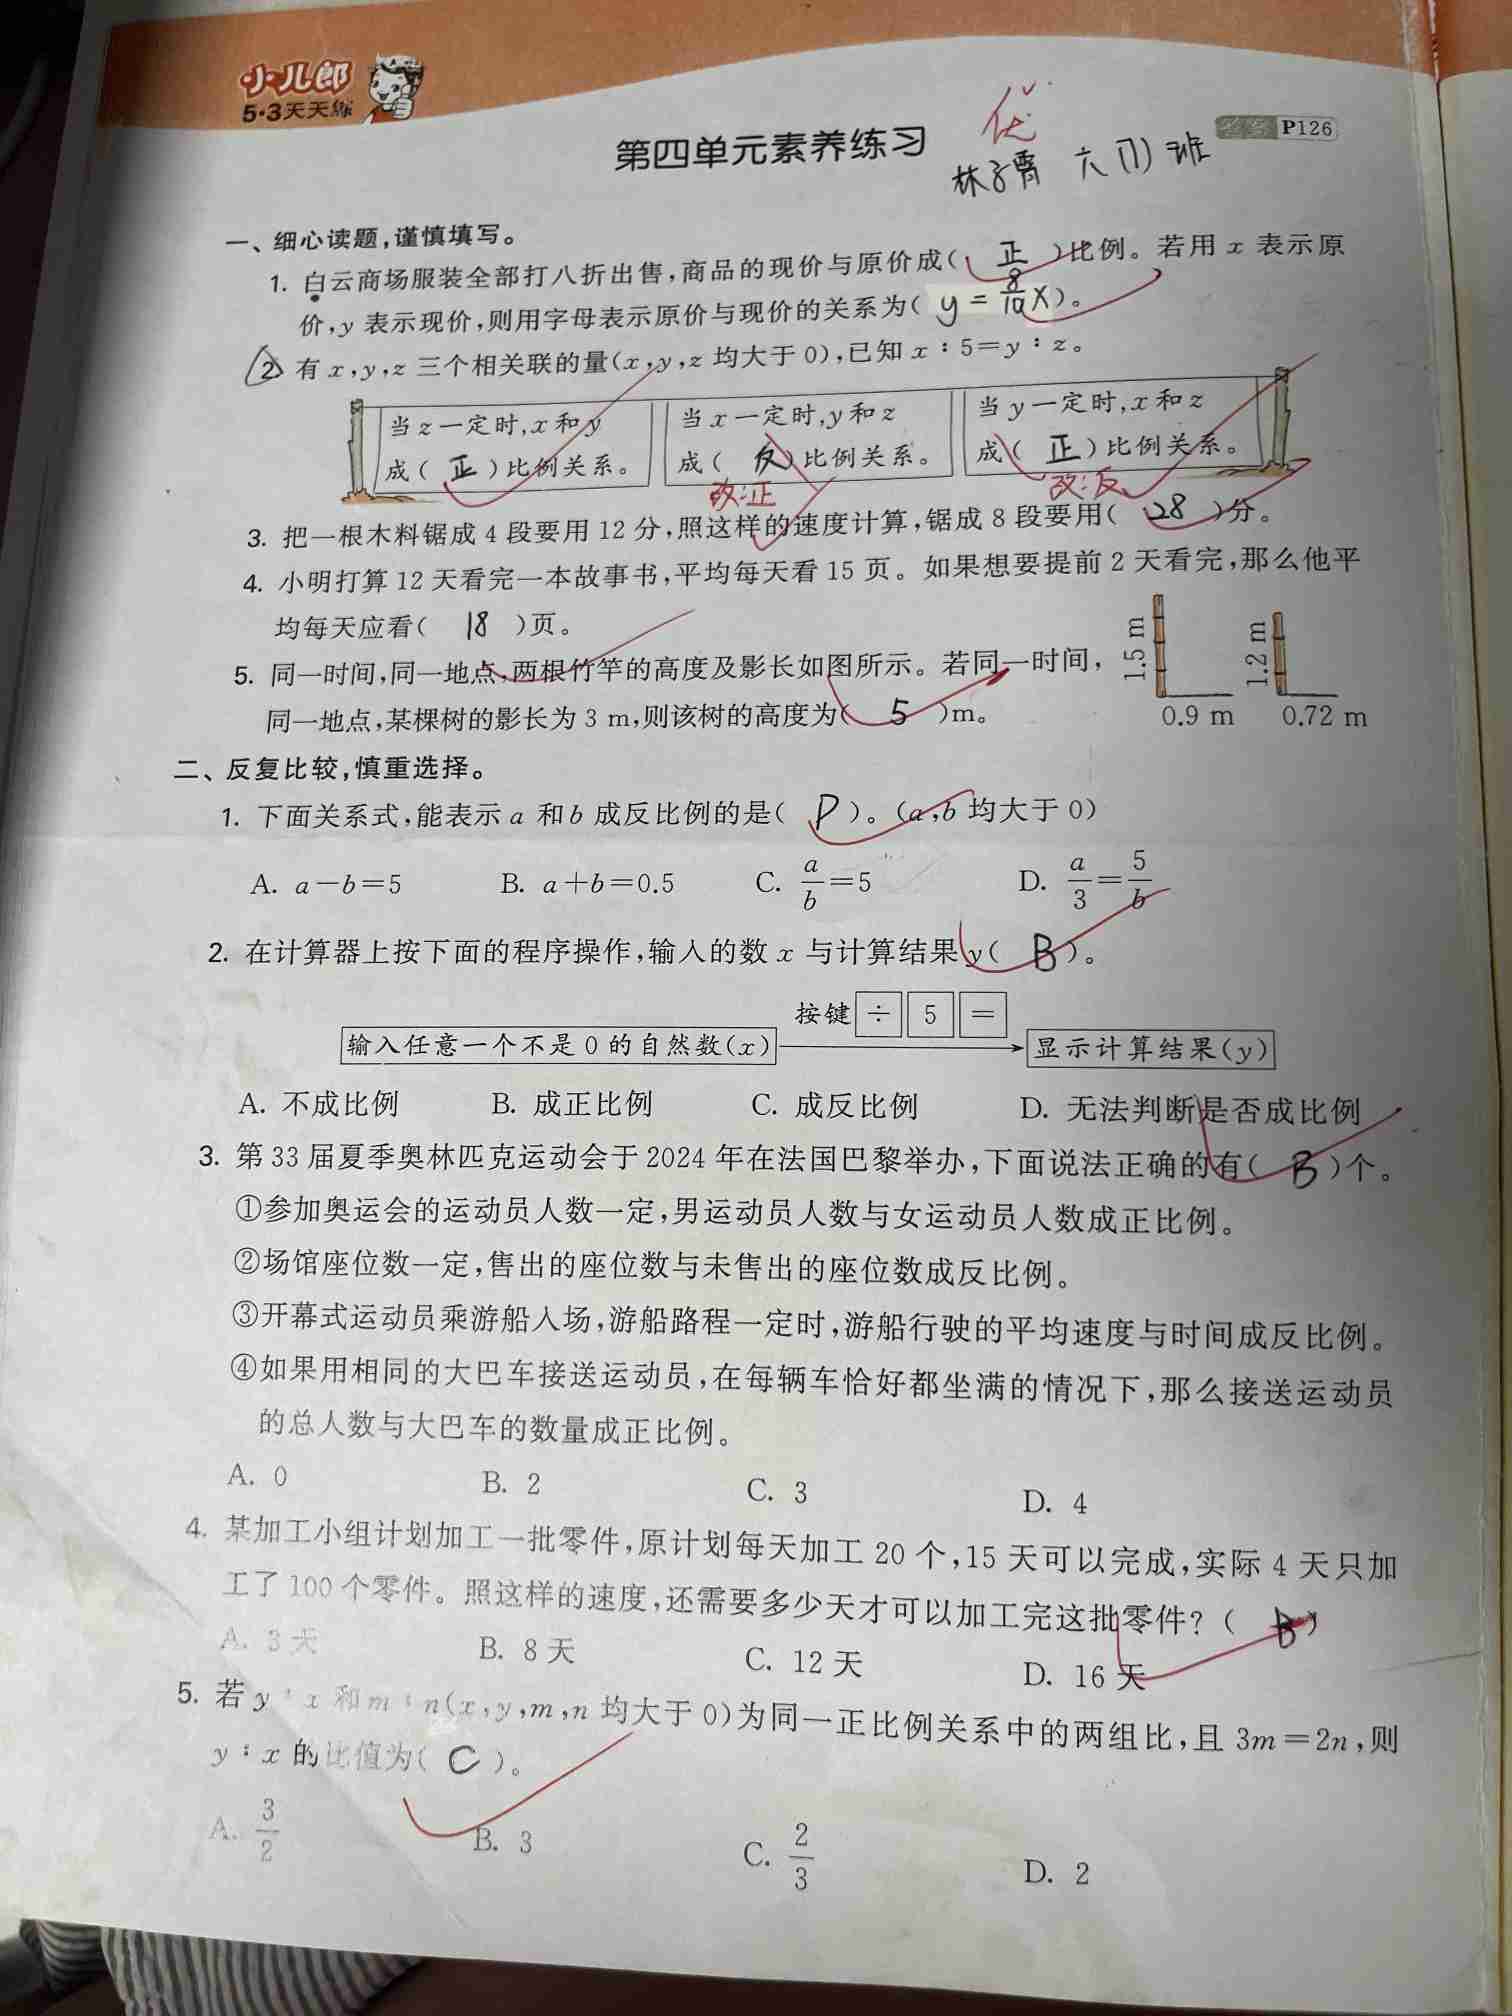 小儿郎
5·3天天练
第四单元素养练习
优
P126
六(1)班
一、细心读题,谨慎填写。
1. 白云商场服装全部打八折出售,商品的现价与原价成( 正 )比例。若用 x 表示原
价,y 表示现价,则用字母表示原价与现价的关系为( y = 8/10 x )。
2. 有 x,y,z 三个相关联的量(x,y,z 均大于 0),已知 x∶5=y∶z。
当 z 一定时,x 和 y
成( 正 )比例关系。
当 x 一定时,y 和 z
成( 反 )比例关系。
改:正
当 y 一定时,x 和 z
成( 正 )比例关系。
改:反
3. 把一根木料锯成 4 段要用 12 分,照这样的速度计算,锯成 8 段要用( 28 )分。
4. 小明打算 12 天看完一本故事书,平均每天看 15 页。如果想要提前 2 天看完,那么他平
均每天应看( 18 )页。
5. 同一时间,同一地点,两根竹竿的高度及影长如图所示。若同一时间,
同一地点,某棵树的影长为 3 m,则该树的高度为( 5 )m。
1.5 m
0.9 m
1.2 m
0.72 m
二、反复比较,慎重选择。
1. 下面关系式,能表示 a 和 b 成反比例的是( D )。(a,b 均大于 0)
A. a-b=5 B. a+b=0.5 C. a/b=5 D. a/3=5/b
2. 在计算器上按下面的程序操作,输入的数 x 与计算结果 y( B )。
按键 ÷ 5 =
输入任意一个不是 0 的自然数(x) 显示计算结果(y)
A. 不成比例 B. 成正比例 C. 成反比例 D. 无法判断是否成比例
3. 第 33 届夏季奥林匹克运动会于 2024 年在法国巴黎举办,下面说法正确的有( B )个。
①参加奥运会的运动员人数一定,男运动员人数与女运动员人数成正比例。
②场馆座位数一定,售出的座位数与未售出的座位数成反比例。
③开幕式运动员乘游船入场,游船路程一定时,游船行驶的平均速度与时间成反比例。
④如果用相同的大巴车接送运动员,在每辆车恰好都坐满的情况下,那么接送运动员
的总人数与大巴车的数量成正比例。
A. 0 B. 2 C. 3 D. 4
4. 某加工小组计划加工一批零件,原计划每天加工 20 个,15 天可以完成,实际 4 天只加
工了 100 个零件。照这样的速度,还需要多少天才可以加工完这批零件?( B )
A. 3 天 B. 8 天 C. 12 天 D. 16 天
5. 若 y∶x 和 m∶n(x,y,m,n 均大于 0)为同一正比例关系中的两组比,且 3m=2n,则
y∶x 的比值为( C )。
A. 3/2 B. 3 C. 2/3 D. 2